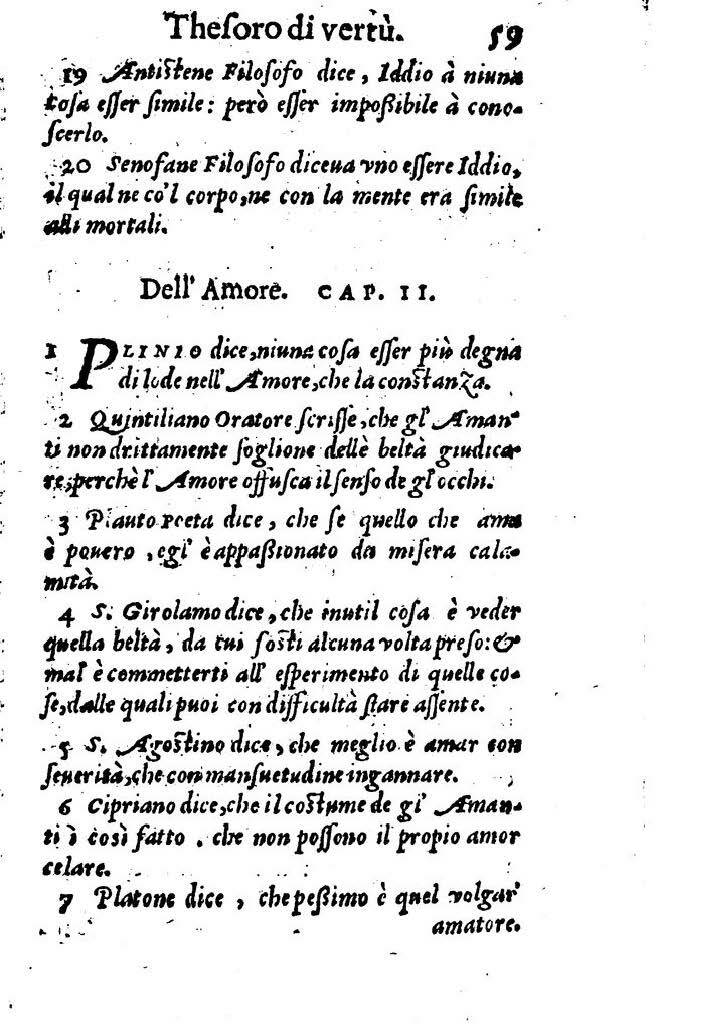 Theſoro di vertù. 59
19 Antiſtene Filoſofo dice, Iddio à niuna
coſa eſſer ſimile: però eſſer impoßibile à cono-
ſcerlo.
20 Senofane Filoſofo diceua vno eſſere Iddio,
il qual ne co'l corpo, ne con la mente era ſimile
alli mortali.
Dell' Amore. CAP. II.
1 PLINIO dice, niuna coſa eſſer più degna
di lode nell' Amore, che la conſtanza.
2 Quintiliano Oratore ſcriſſe, che gl' Aman-
ti non drittamente ſogliono delle beltà giudica-
re, perchè l' Amore offuſca il ſenſo de gl' occhi.
3 Plauto Poeta dice, che ſe quello che ama
è pouero, egl' è appaßionato da miſera cala-
mità.
4 S. Girolamo dice, che inutil coſa è veder
quella beltà, da cui foſti alcuna volta preſo: &
mal' è commetterti all' eſperimento di quelle co-
ſe, dalle quali puoi con difficultà ſtare aſſente.
5 S. Agoſtino dice, che meglio è amar con
ſeuerità, che con manſuetudine ingannare.
6 Cipriano dice, che il coſtume de gl' Aman-
ti è così fatto, che non poſſono il propio amor
celare.
7 Platone dice, che peßimo è quel volgar'
amatore.